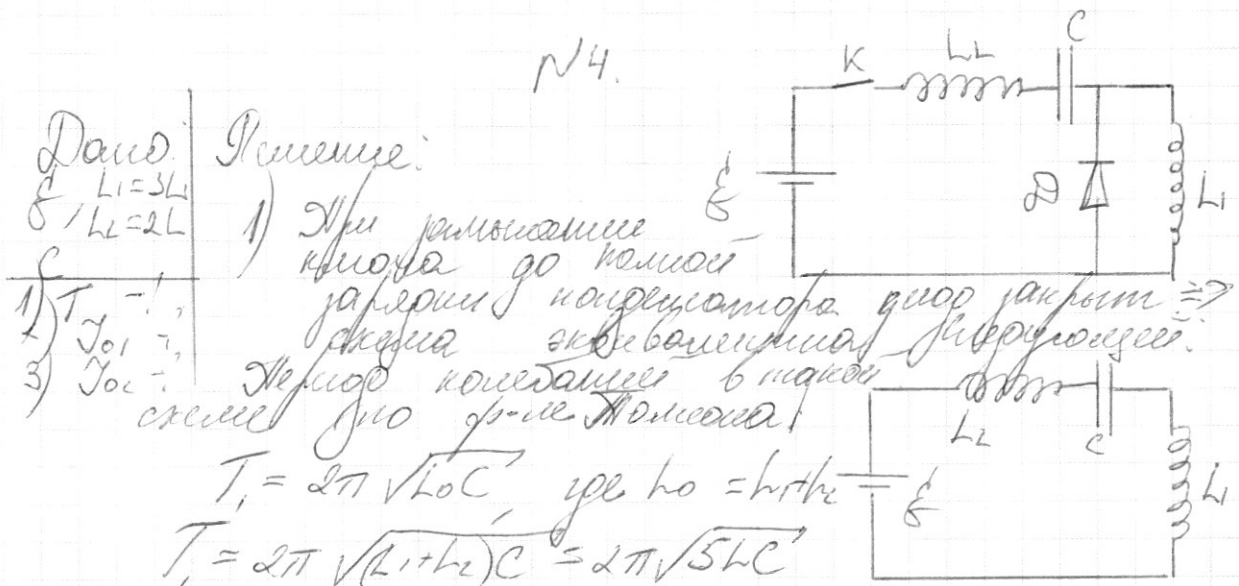 N4.
Дано:
Решение:
ℰ, L1=3L
L2=2L
C
1) T -?,
2) I01 -?,
3) I02 -?
1) При замыкании
ключа до полной
зарядки конденсатора диод закрыт =>
схема эквивалентна следующей:
Период колебаний в такой
схеме по ф-ле Томсона:
T1 = 2π √L0C, где L0 = L1+L2
T1 = 2π √(L1+L2)C = 2π√5LC
K
L2
C
ℰ
D
L1
L2
C
ℰ
L1